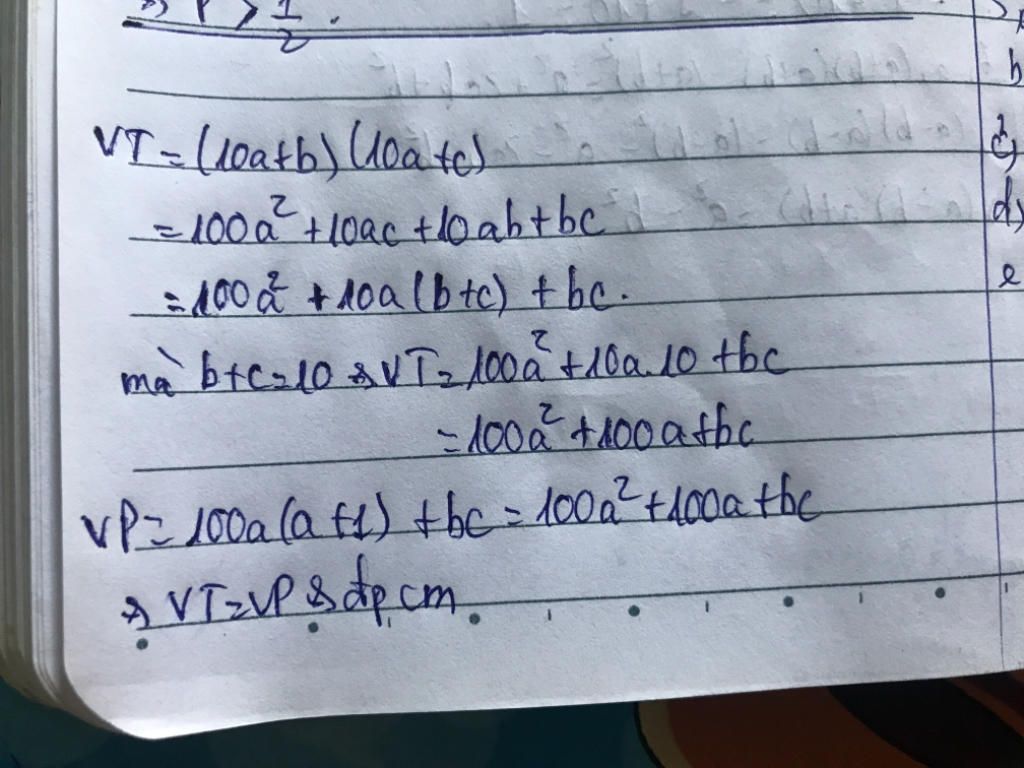 => P > 1/2 .
VT = (10a+b)(10a+c)
= 100a² + 10ac + 10ab + bc
= 100a² + 10a(b+c) + bc.
mà b+c=10 => VT = 100a² + 10a.10 + bc
= 100a² + 100a + bc
VP = 100a(a+1) + bc = 100a² + 100a + bc
=> VT=VP => đpcm
b
c)
d)
e